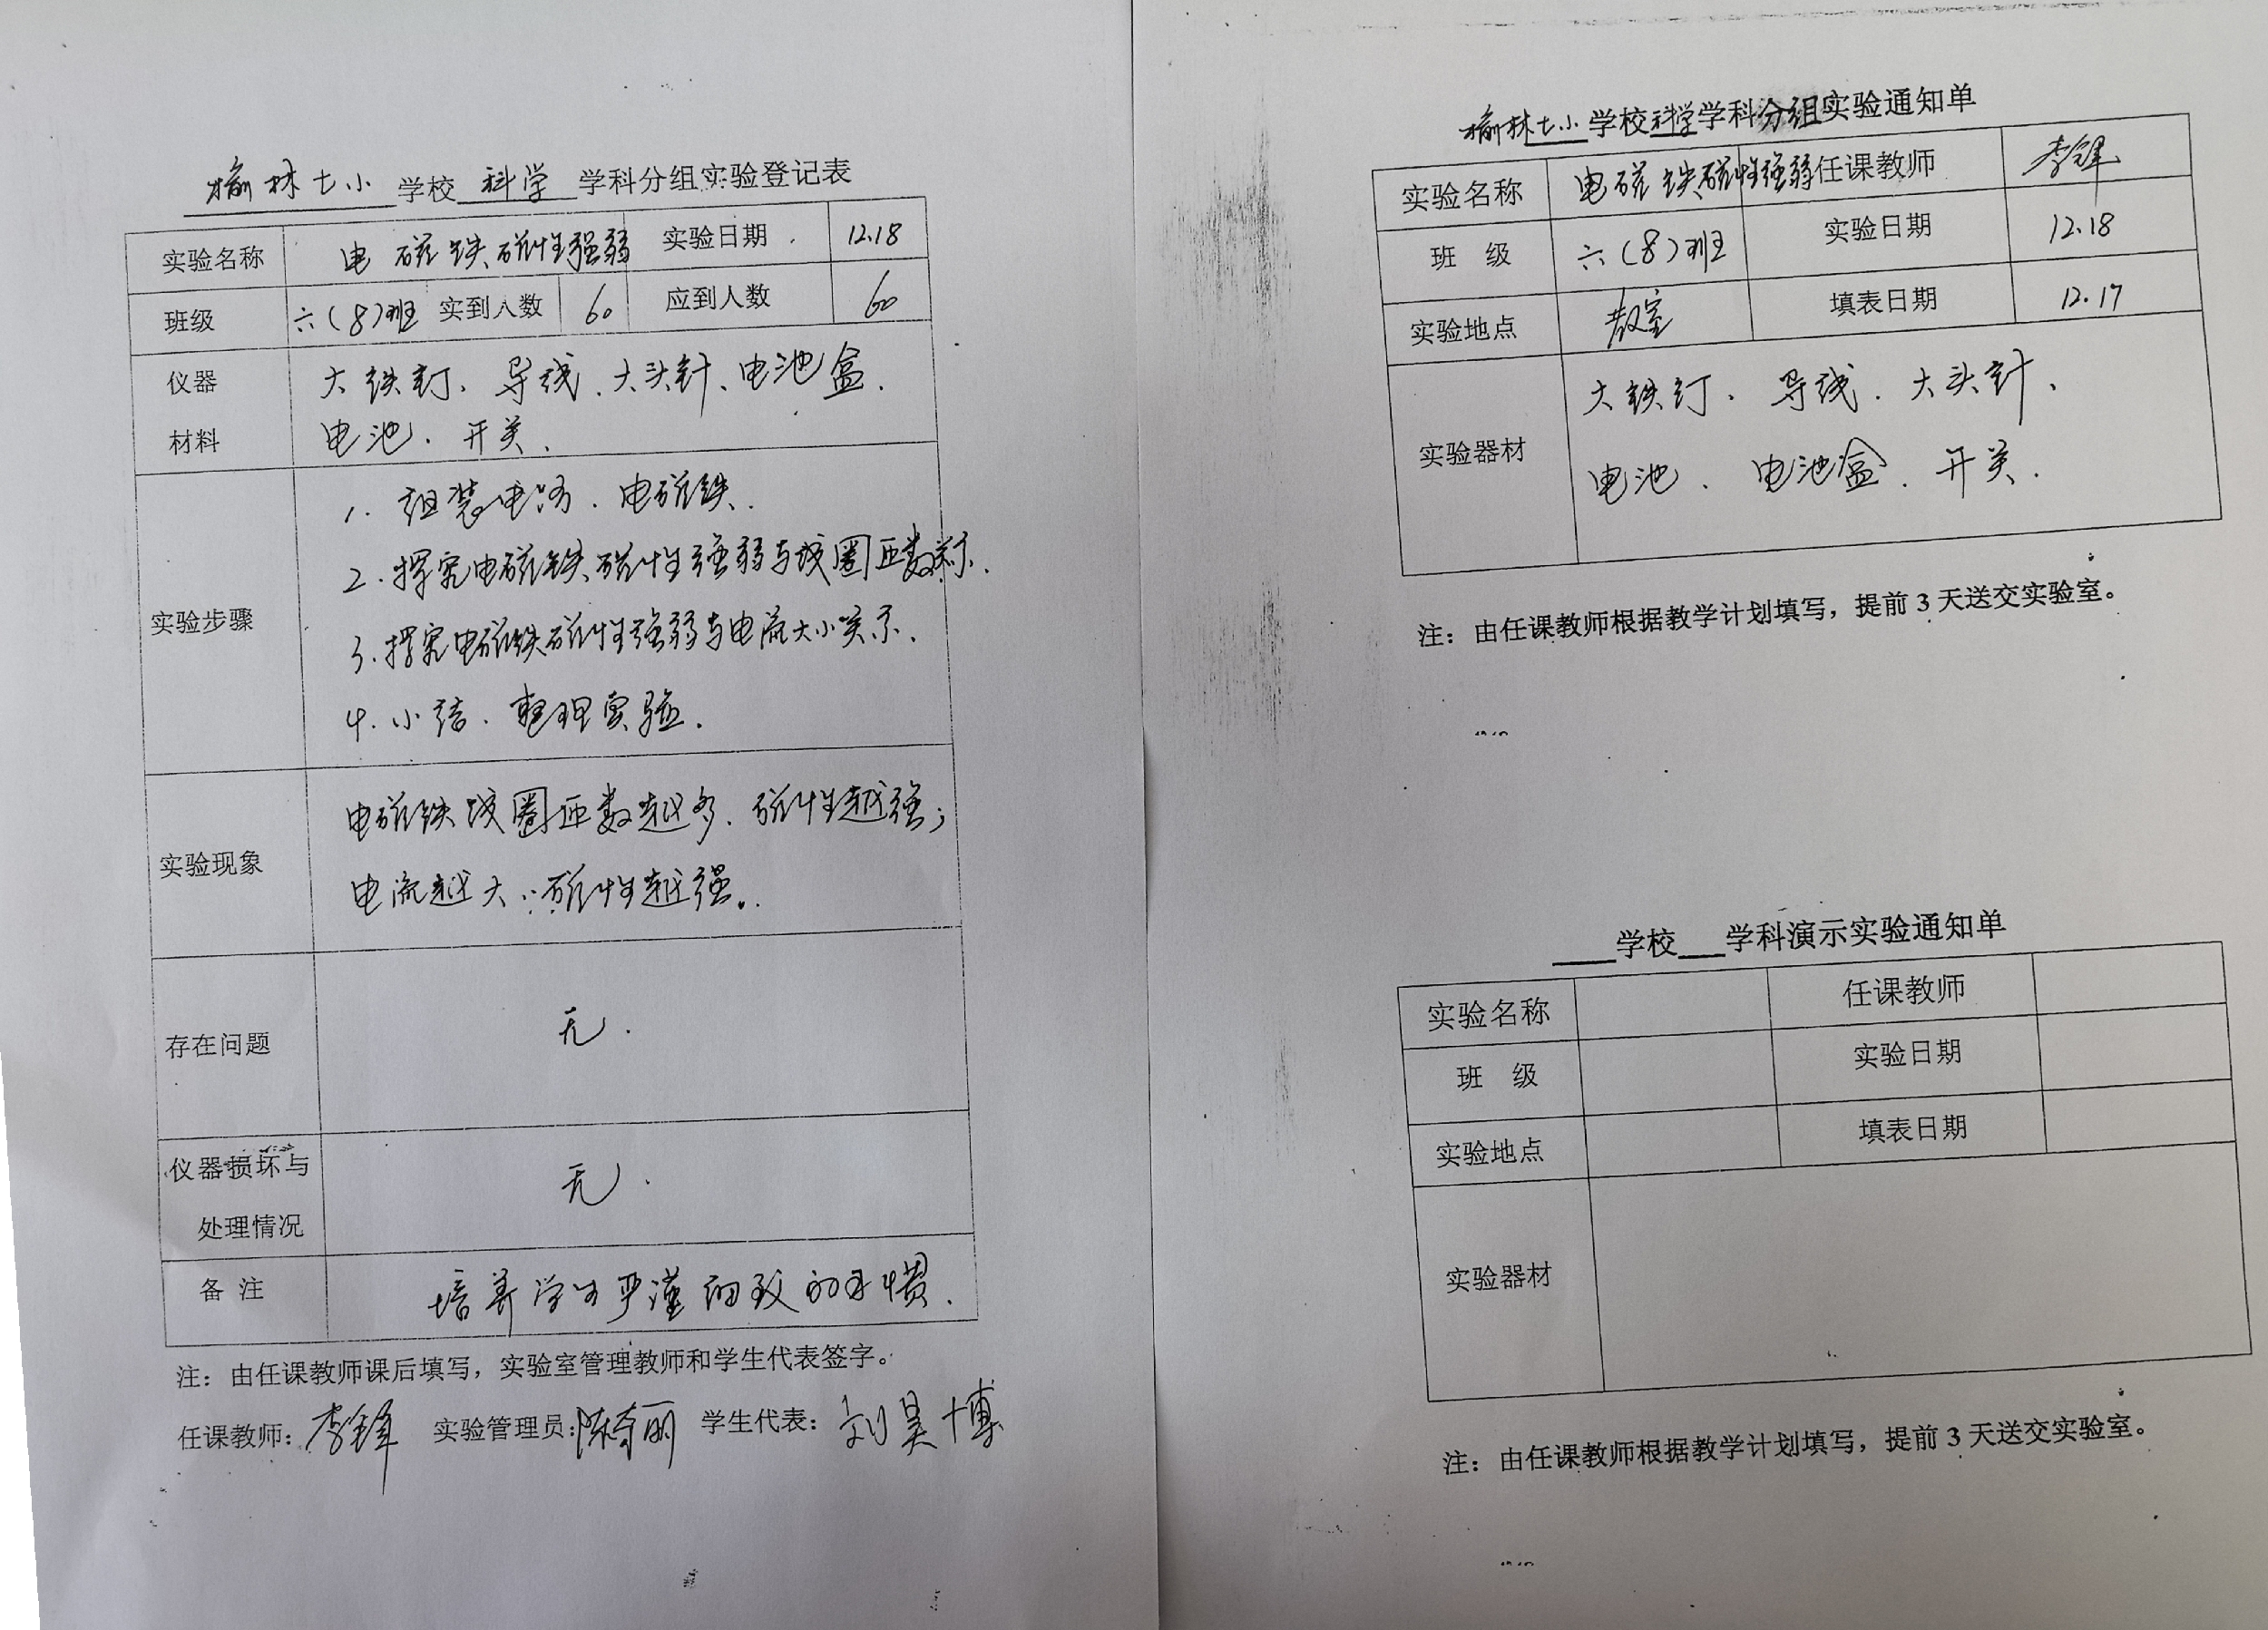 榆林七小 学校 科学 学科分组实验登记表
实验名称 电磁铁磁性强弱 实验日期 12.18
班级 六(8)班 实到人数 60 应到人数 60
仪器 大铁钉、导线、大头针、电池盒、
材料 电池、开关、
实验步骤
1. 组装电路、电磁铁.
2. 探究电磁铁磁性强弱与线圈匝数关系.
3. 探究电磁铁磁性强弱与电流大小关系.
4. 小结、整理实验.
实验现象
电磁铁线圈匝数越多、磁性越强;
电流越大、磁性越强。
存在问题 无.
仪器损坏与
处理情况 无.
备 注 培养学生严谨细致的习惯.
注：由任课教师课后填写，实验室管理教师和学生代表签字。
任课教师：李锋 实验管理员：陈奇丽 学生代表：刘昊博
榆林七小学校科学学科分组实验通知单
实验名称 电磁铁磁性强弱 任课教师 李锋
班 级 六(8)班 实验日期 12.18
实验地点 教室 填表日期 12.17
实验器材
大铁钉、导线、大头针、
电池、电池盒、开关.
注：由任课教师根据教学计划填写，提前3天送交实验室。
学校 学科演示实验通知单
实验名称 任课教师
班 级 实验日期
实验地点 填表日期
实验器材
注：由任课教师根据教学计划填写，提前3天送交实验室。